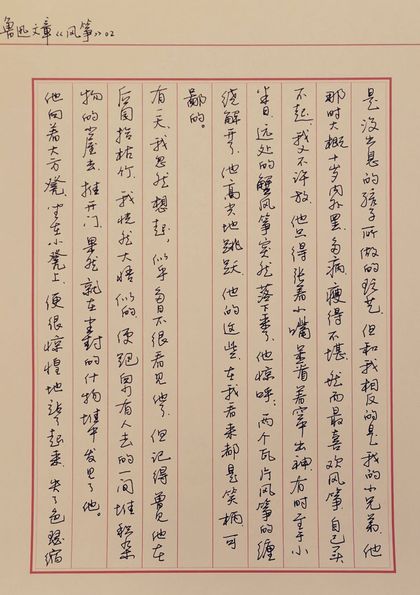 鲁迅文章《风筝》02
是没出息的孩子所做的玩艺。但和我相反的是我的小兄弟,他
那时大概十岁内外罢,多病,瘦得不堪,然而最喜欢风筝,自己买
不起,我又不许放,他只得张着小嘴,呆看着空出神,有时至于小
半日。远处的蟹风筝突然落下来了,他惊呼;两个瓦片风筝的缠
绕解开了,他高兴地跳跃。他的这些,在我看来都是笑柄,可
鄙的。
有一天,我忽然想起,似乎多日不很看见他了,但记得曾见他在
后园拾枯竹。我恍然大悟似的,便跑向少有人去的一间堆积杂
物的小屋去,推开门,果然就在尘封的什物堆中发见了他。
他向着大方凳,坐在小凳上;便很惊惶地站了起来,失了色瑟缩